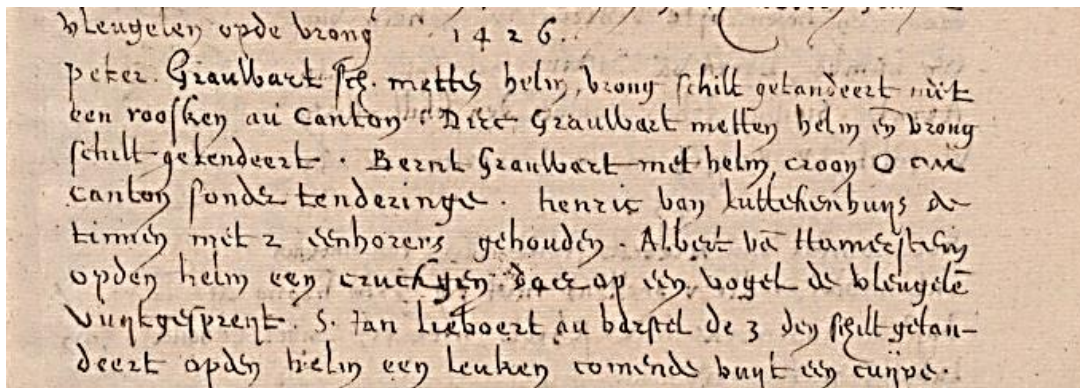 vleugelen opde vrong 1426.
peter. Graulbart sch. mettẽ helm, vrong schilt getandeert mit
een roosken au Canton : Dirc Graulbart metten helm eñ vrong
schilt getendeert . Bernt Graulbart met helm, croon O au
Canton sonder tenderinge . henric van luttekenhuys de
tinnen met 2 eenhorens gehouden . Albert vã Hamerstein
opden helm een cruckgen daer op een vogel de vleugelẽ
vuytgespreyt . S. Jan lieboert au barstel de 3 den schilt getan-
deert opden helm een leuken comende vuyt een cuype .